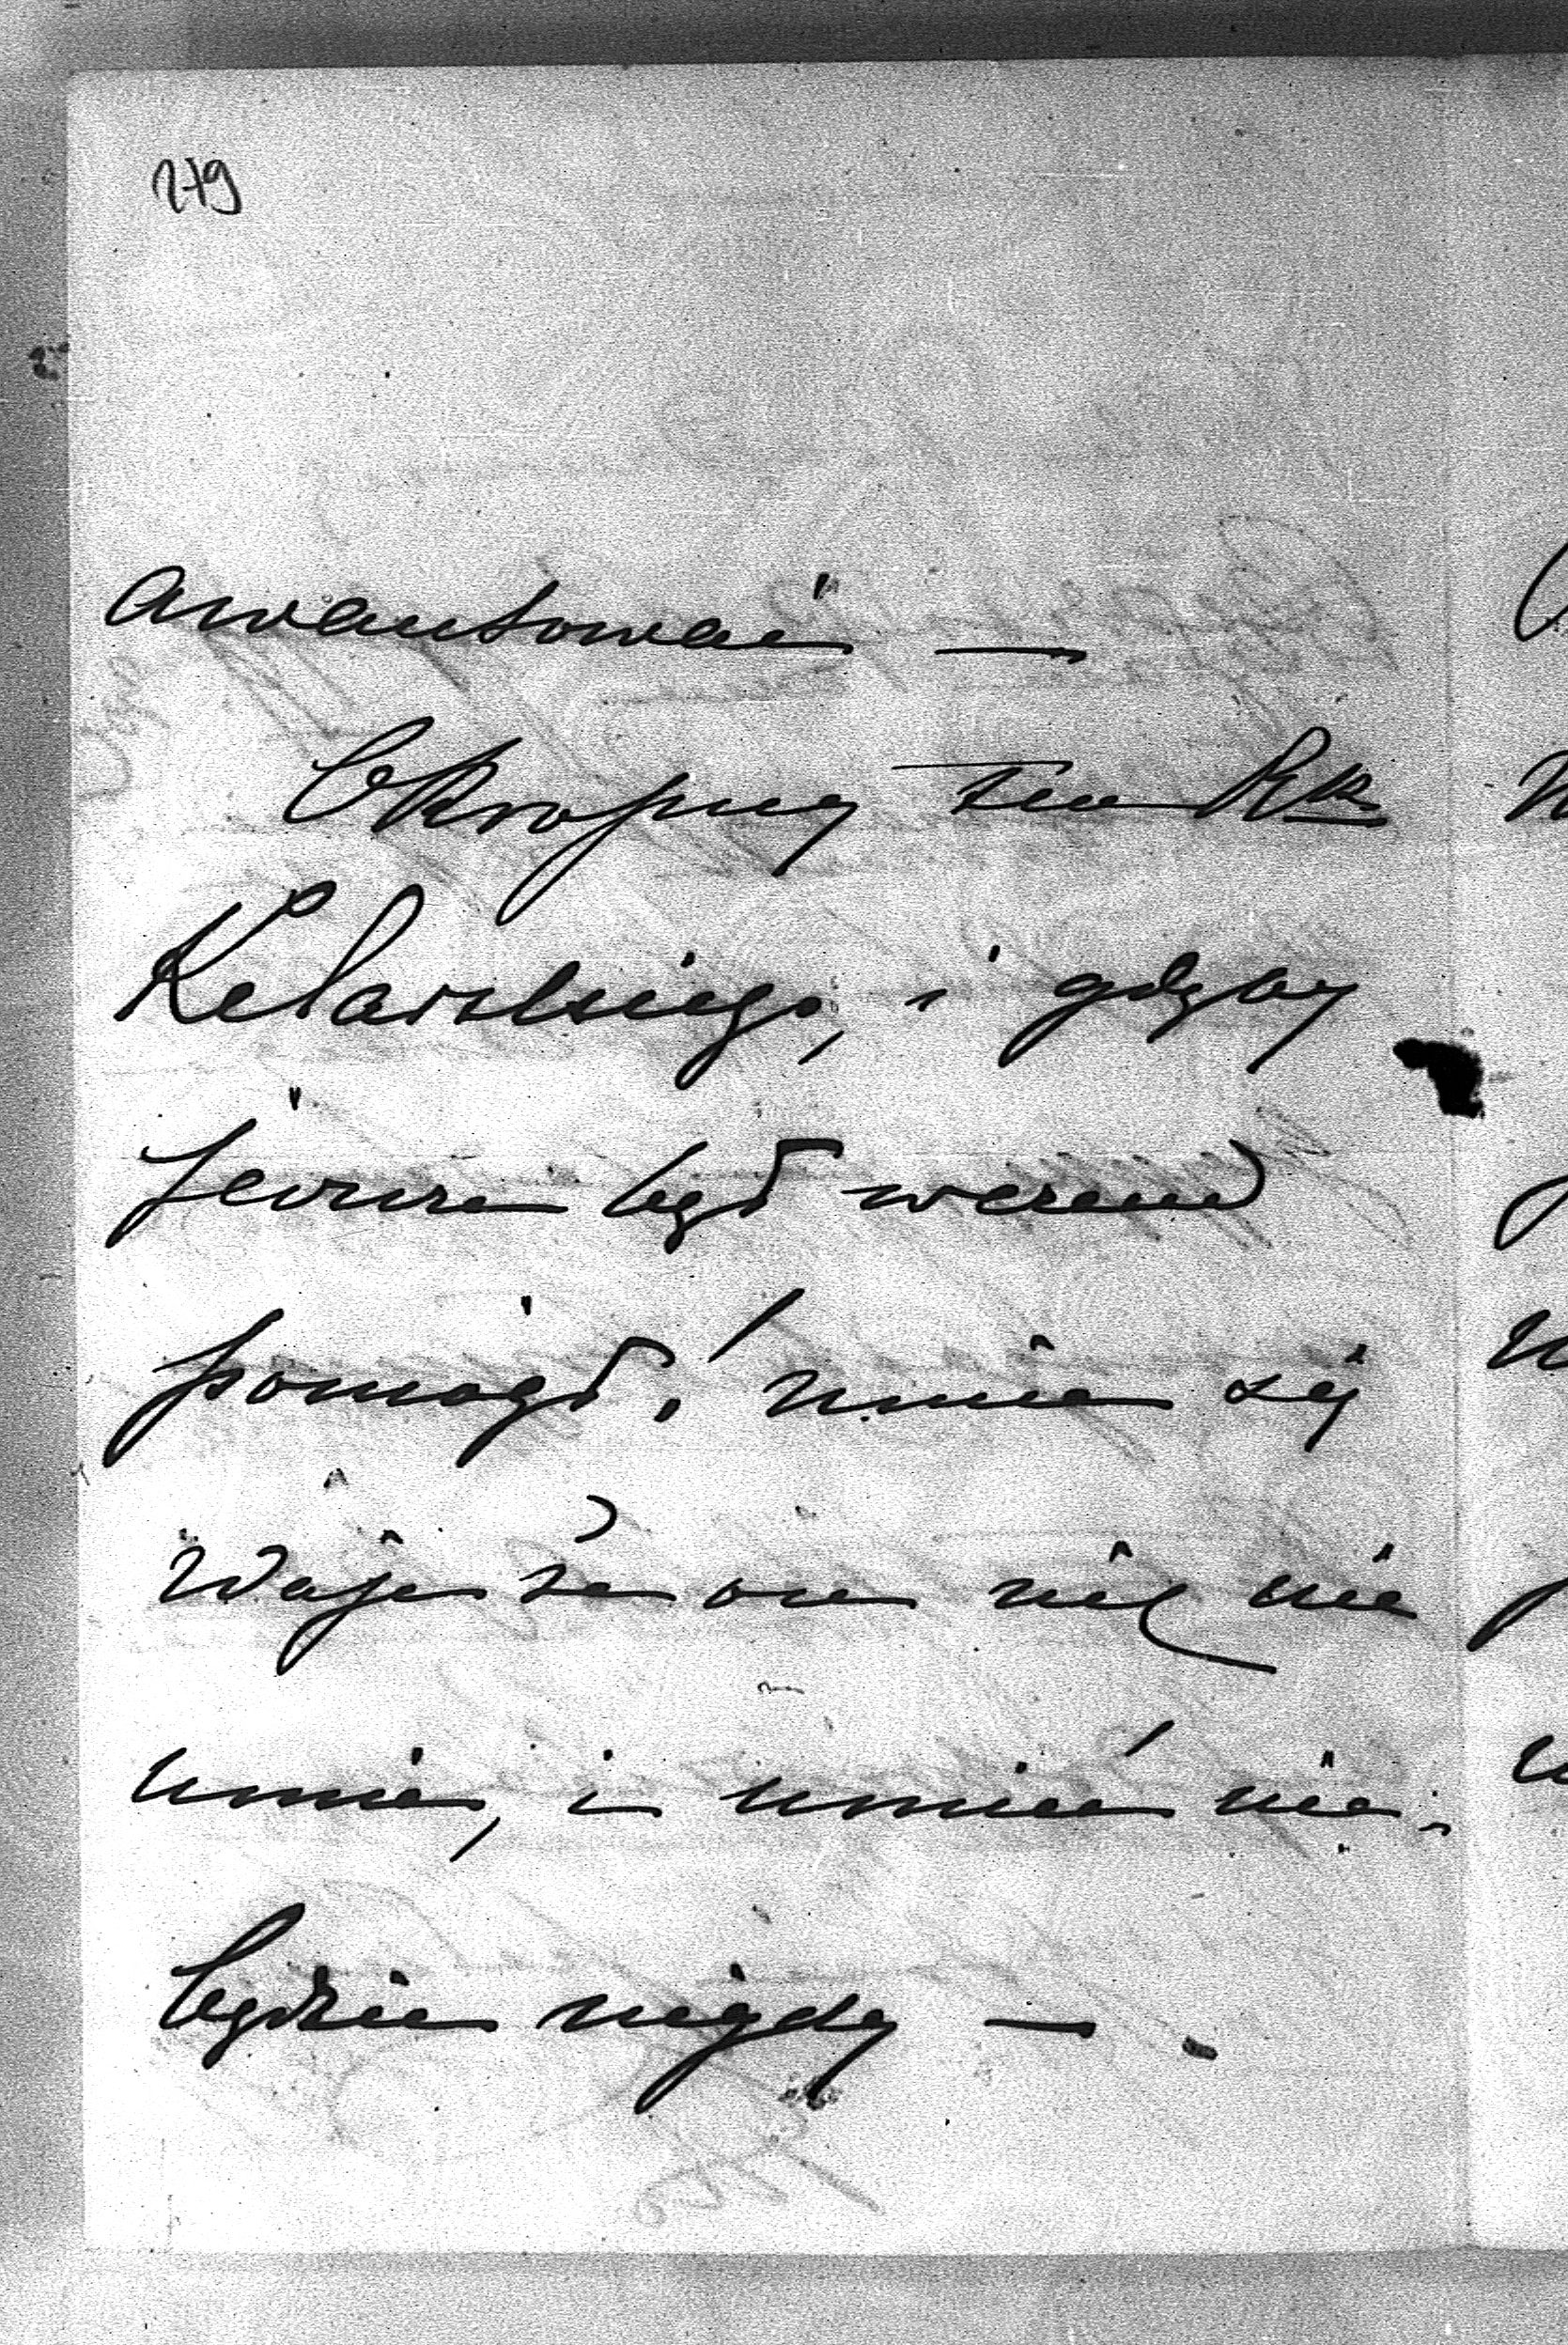 219
awansować —
Okropny ten Rk
Kelarskiego, i gdyby
jeszcze był wezwał
pomógł, ! mnie się
zdaje że on nic nie
umie, i umieć nie
będzie nigdy —